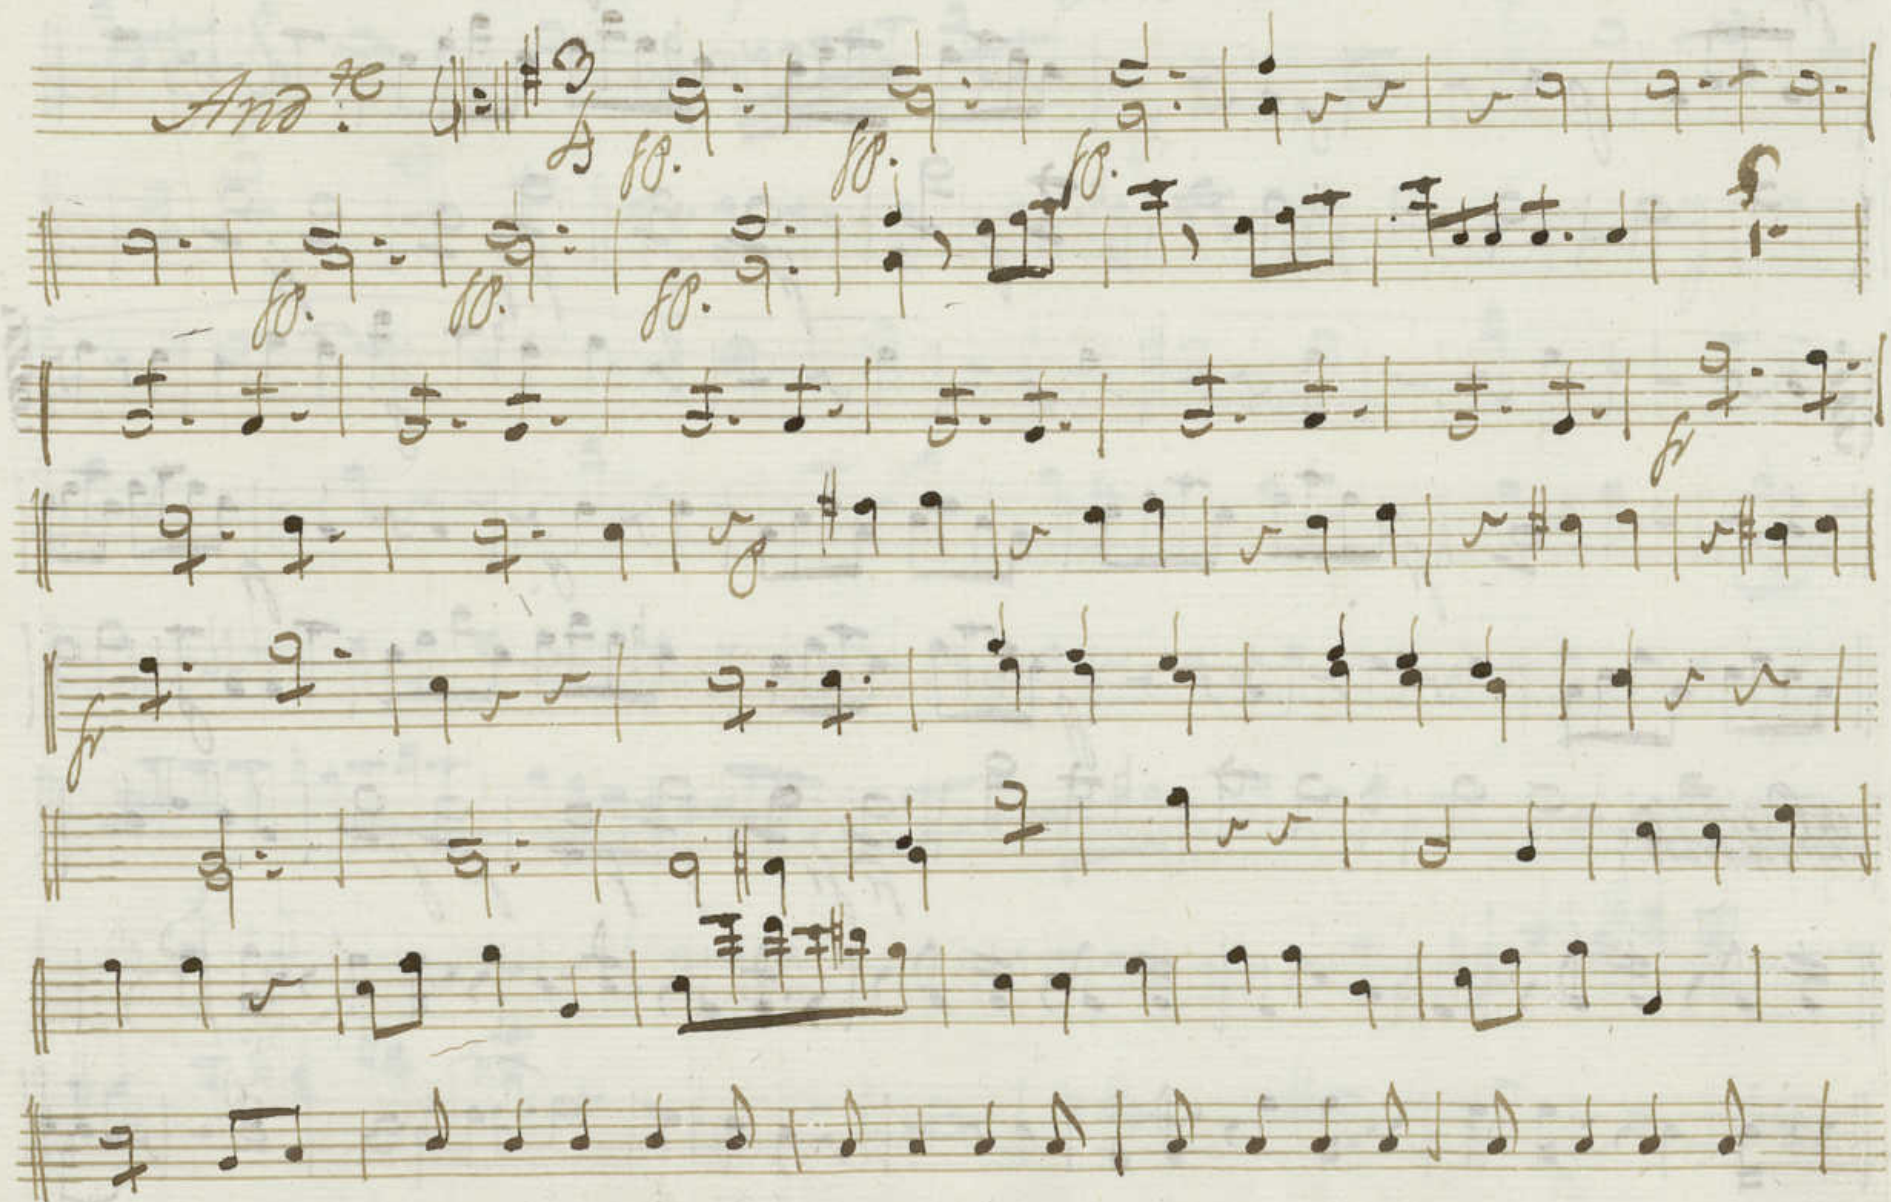 And.te 3 4 fp. fp. fp.
fp. fp. fp.
fr
p
fr